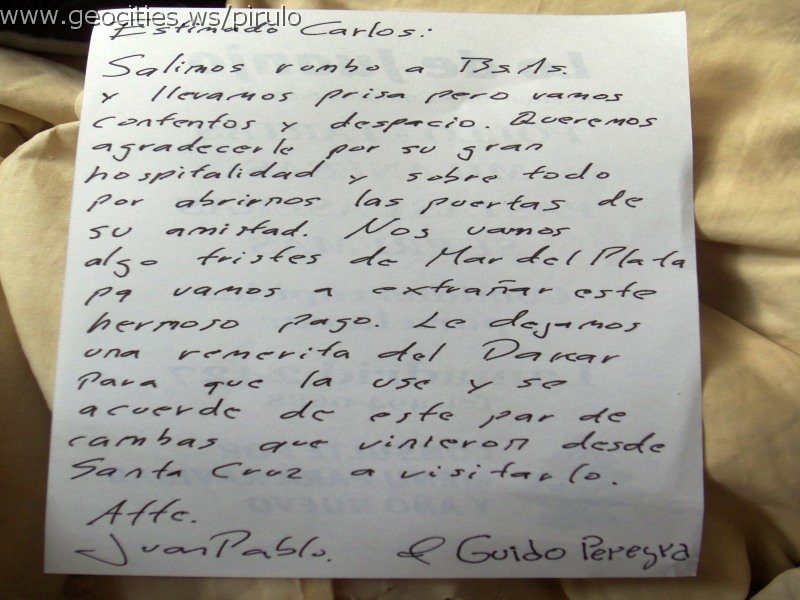 www.geocities.ws/pirulo
Estimado Carlos:
Salimos rumbo a Bs.As.
y llevamos prisa pero vamos
contentos y despacio. Queremos
agradecerle por su gran
hospitalidad y sobre todo
por abrirnos las puertas de
su amistad. Nos vamos
algo tristes de Mar del Plata
pq vamos a extrañar este
hermoso pago. Le dejamos
una remerita del Dakar
para que la use y se
acuerde de este par de
cambas que vinieron desde
Santa Cruz a visitarlo.
Atte.
Juan Pablo. & Guido Pereyra